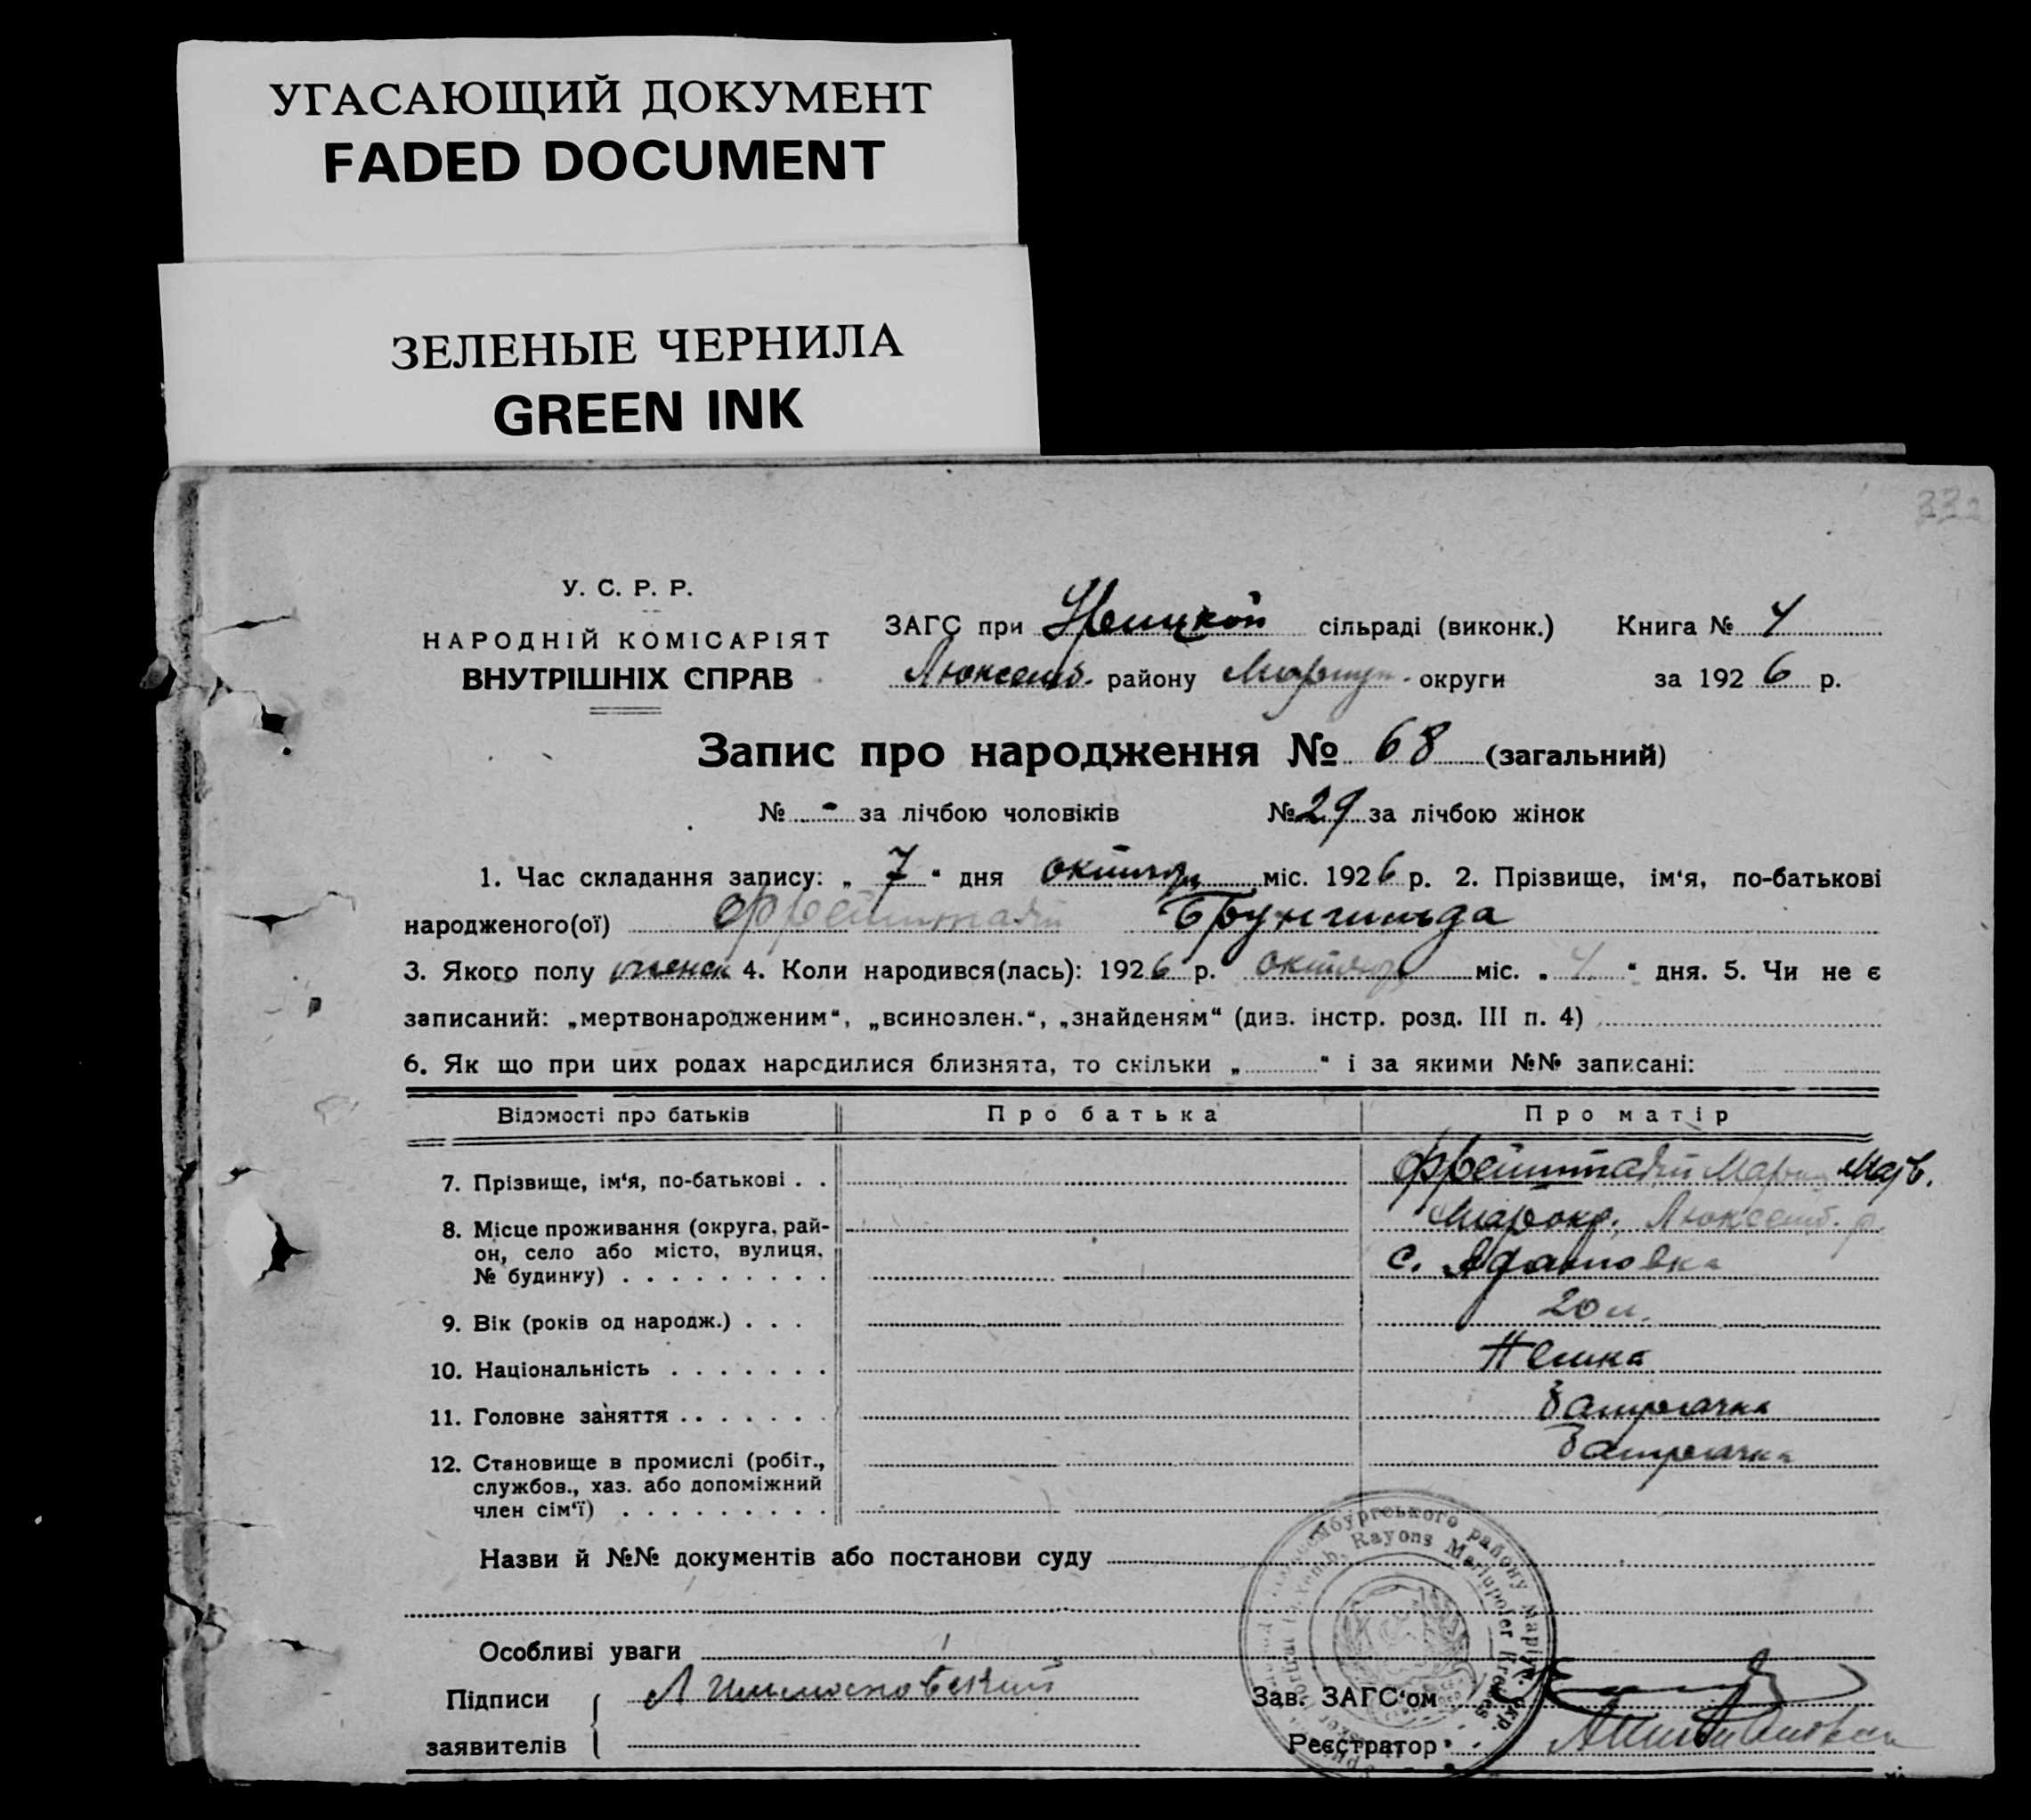 УГАСАЮЩИЙ ДОКУМЕНТ
FADED DOCUMENT
ЗЕЛЕНЫЕ ЧЕРНИЛА
GREEN INK
332
У. С. Р. Р.
НАРОДНІЙ КОМІСАРІЯТ
ВНУТРІШНІХ СПРАВ
ЗАГС при сільраді (виконк.) Книга № 4
Люксемб. району Мариуп. округи за 1926 р.
Запис про народження № 68 (загальний)
№ - за лічбою чоловіків № 29 за лічбою жінок
1. Час складання запису: „ 7 " дня октября міс. 1926 р. 2. Прізвище, ім'я, по-батькові
народженого(ої) Фрейштадт Брунгильда
3. Якого полу женск 4. Коли народився(лась): 1926 р. октября міс. „ 4 " дня. 5. Чи не є
записаний: „мертвонародженим", „всиновлен.", „знайденям" (див. інстр. розд. III п. 4)
6. Як що при цих родах народилися близнята, то скільки „ " і за якими №№ записані:
Відомості про батьків Про батька Про матір
7. Прізвище, ім'я, по-батькові . . Фрейштадт Мария
8. Місце проживання (округа, рай-
он, село або місто, вулиця,
№ будинку) . . . . . . . . .
Марокр. Люксемб. р.
с.
9. Вік (років од народж.) . . . 20 л.
10. Національність . . . . . . . Немка
11. Головне заняття . . . . . . Батрачка
12. Становище в промислі (робіт.,
службов., хаз. або допоміжний
член сім'ї) . . . . . . . . .
Батрачка
Назви й №№ документів або постанови суду
Особливі уваги
Підписи
заявителів
Зав. ЗАГС'ом
Реєстратор
Rayons Mariupoler Kreises
району Маріуп. окр.